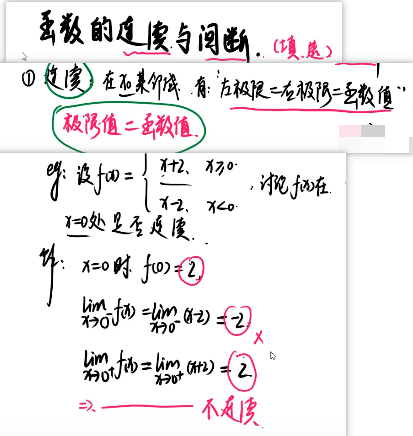 函数的连续与间断.(填.选)
① 连续:在x0某邻域 有:“左极限=右极限=函数值”
极限值=函数值.
eg:设f(x)= { x+2、 x≥0. ,讨论f(x)在
x-2、 x<0.
x=0处是否连续.
解: x=0时 f(0)=2,
lim x→0⁻ f(x)=lim x→0⁻ (x-2)=-2. ×
lim x→0⁺ f(x)=lim x→0⁺ (x+2)=2
⇒ ——— 不连续